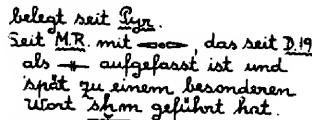 belegt seit Pyr.
Seit M.R. mit , das seit D.19
als aufgefasst ist und
spät zu einem besonderen
Wort sḥm geführt hat.